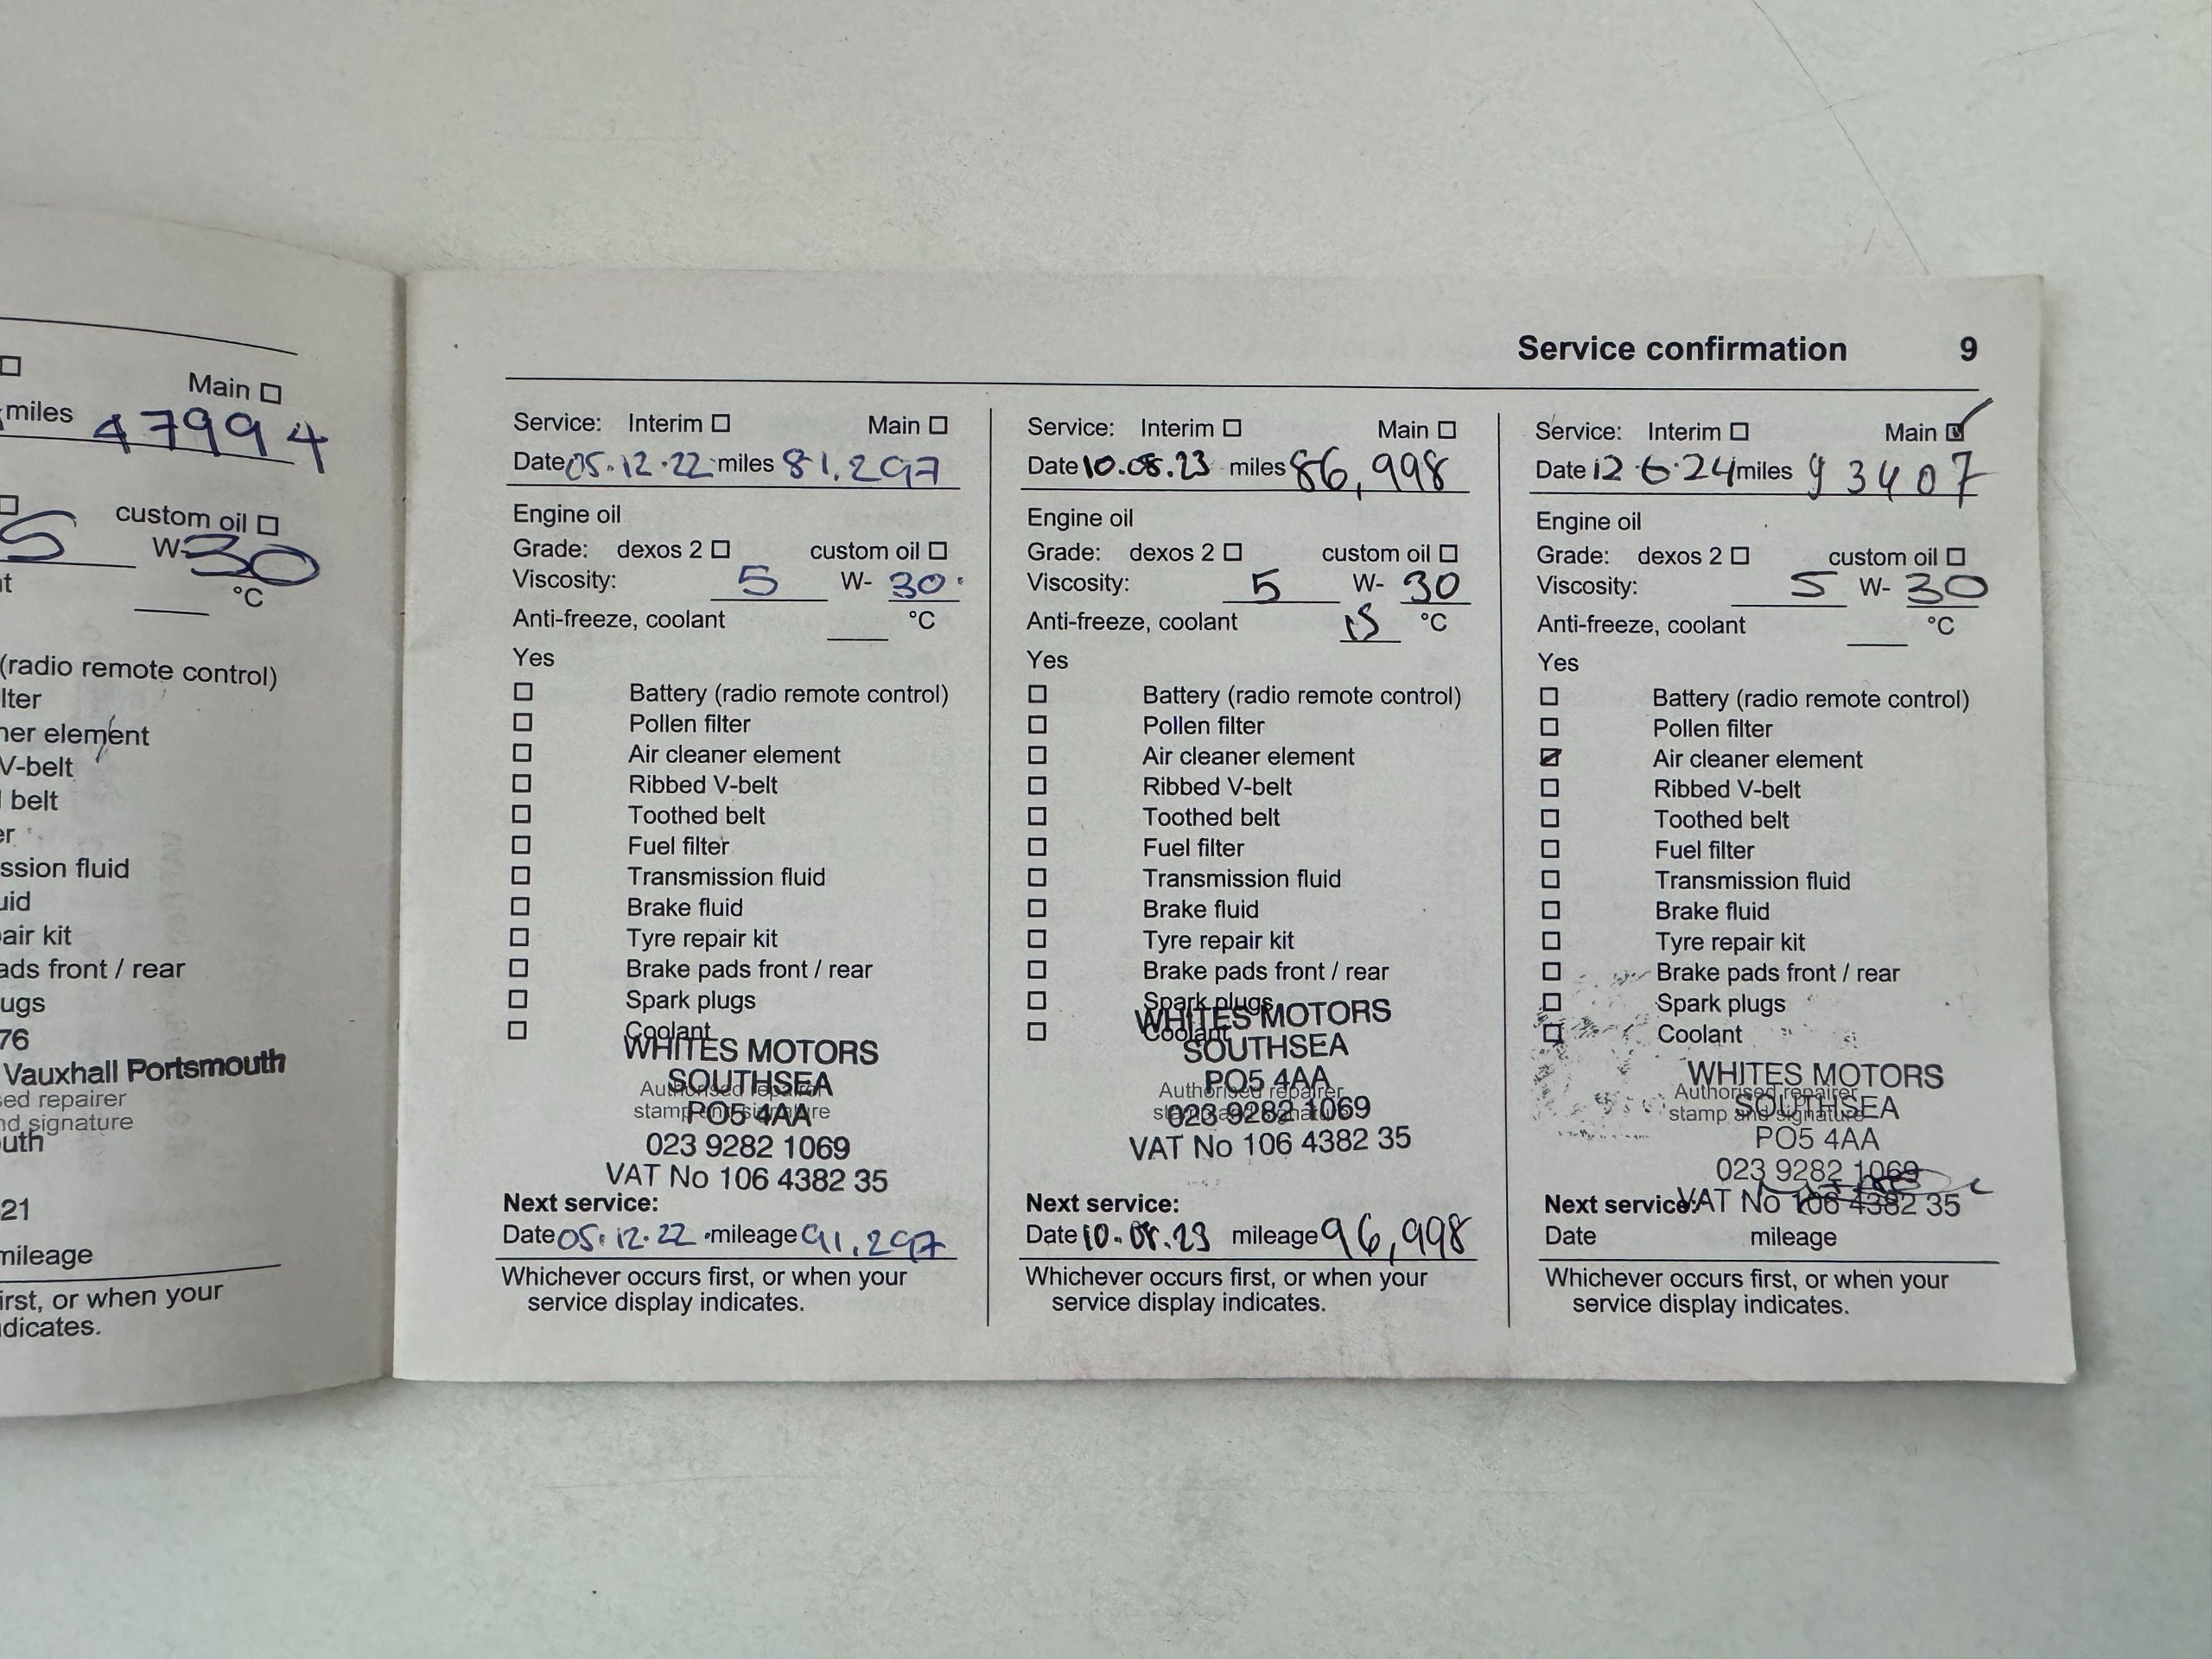 Main
miles 47994
custom oil
5 W-30
°C
(radio remote control)
lter
ner element
V-belt
belt
er
ssion fluid
uid
air kit
ads front / rear
ugs
76
Vauxhall Portsmouth
ed repairer
nd signature
outh
21
mileage
irst, or when your
dicates.
Service confirmation 9
Service: Interim Main
Date 05.12.22 miles 81.297
Engine oil
Grade: dexos 2 custom oil
Viscosity: 5 W- 30.
Anti-freeze, coolant °C
Yes
Battery (radio remote control)
Pollen filter
Air cleaner element
Ribbed V-belt
Toothed belt
Fuel filter
Transmission fluid
Brake fluid
Tyre repair kit
Brake pads front / rear
Spark plugs
Coolant
WHITES MOTORS
SOUTHSEA
Authorised repairer
stamp and signature
PO5 4AA
023 9282 1069
VAT No 106 4382 35
Next service:
Date 05.12.22 mileage 91.297
Whichever occurs first, or when your
service display indicates.
Service: Interim Main
Date 10.08.23 miles 86,998
Engine oil
Grade: dexos 2 custom oil
Viscosity: 5 W- 30
Anti-freeze, coolant °C
Yes
Battery (radio remote control)
Pollen filter
Air cleaner element
Ribbed V-belt
Toothed belt
Fuel filter
Transmission fluid
Brake fluid
Tyre repair kit
Brake pads front / rear
Spark plugs
WHITES MOTORS
Coolant
SOUTHSEA
PO5 4AA
Authorised repairer
stamp and signature
023 9282 1069
VAT No 106 4382 35
Next service:
Date 10.08.23 mileage 96,998
Whichever occurs first, or when your
service display indicates.
Service: Interim Main
Date 12.6.24 miles 93407
Engine oil
Grade: dexos 2 custom oil
Viscosity: 5 W- 30
Anti-freeze, coolant °C
Yes
Battery (radio remote control)
Pollen filter
Air cleaner element
Ribbed V-belt
Toothed belt
Fuel filter
Transmission fluid
Brake fluid
Tyre repair kit
Brake pads front / rear
Spark plugs
Coolant
WHITES MOTORS
Authorised repairer
SOUTHSEA
stamp and signature
PO5 4AA
023 9282 1069
VAT No 106 4382 35
Next service:
Date mileage
Whichever occurs first, or when your
service display indicates.